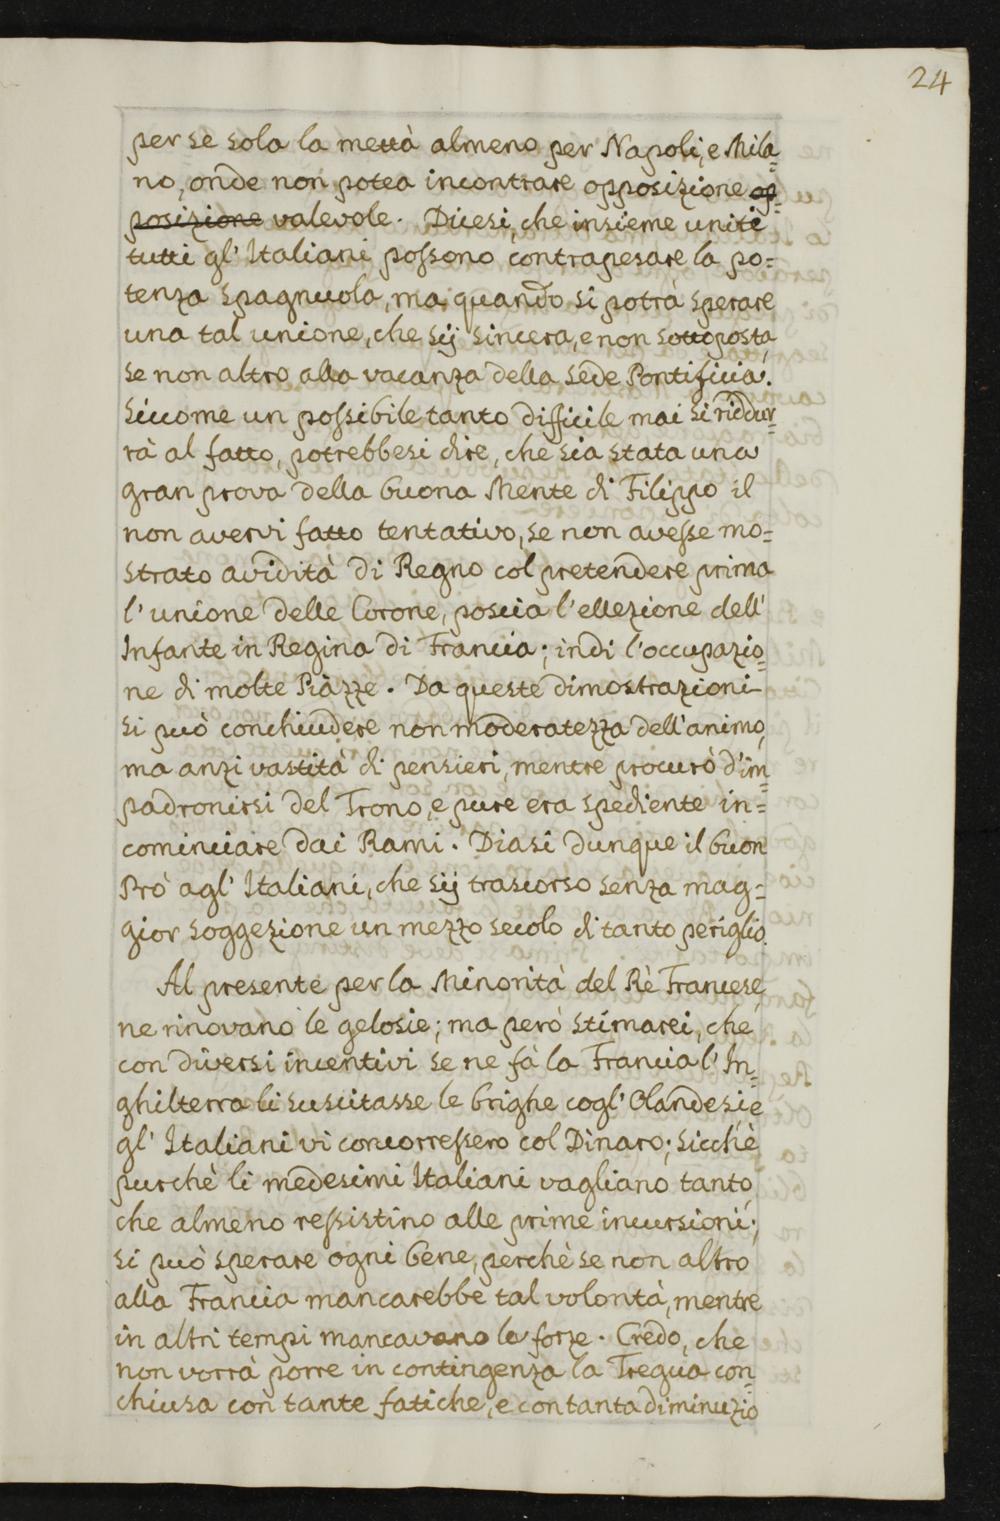 24
per se sola la mettà almeno per Napoli, e Mila-
no, onde non potea incontrare opposizione op-
posizione valevole. Dicesi, che insieme uniti
tutti gl' Italiani possono contrapesare la po=
tenza Spagnuola, ma quando si potrà sperare
una tal unione, che sij sincera, e non sottoposta,
se non altro alla vacanza della Sede Pontificia.
Siccome un possibile tanto difficile mai si riddur=
rà al fatto, potrebbesi dire, che sia stata una
gran prova della buona Mente di Filippo il
non avervi fatto tentativo, se non avesse mo=
strato avidità di Regno col pretendere prima
l'unione delle Corone, poscia l'ellezione dell'
Infante in Regina di Francia; indi l'occupazio=
ne di molte Piazze. Da queste dimostrazioni
si può conchiudere non moderatezza dell'animo,
ma anzi vastità di pensieri, mentre procurò d'im=
padronirsi del Trono, e pure era spediente in=
cominciare dai Rami. Diasi dunque il buon
Prò agl' Italiani, che sij trascorso senza mag=
gior soggezione un mezzo secolo di tanto periglio.
Al presente per la Minorità del Rè Francese,
ne rinovano le gelosie; ma però stimarei, che
con diversi incentivi se ne fà la Francia l'In=
ghilterra li suscitasse le brighe cogl' Olandesi, e
gl' Italiani vi concorressero col Dinaro; sicchè
purchè li medesimi Italiani vagliano tanto,
che almeno ressistino alle prime incursioni;
si può sperare ogni bene, perchè se non altro
alla Francia mancarebbe tal volontà, mentre
in altri tempi mancavano le forze. Credo, che
non vorrà porre in contingenza la Tregua con=
chiusa con tante fatiche, e con tanta diminuzio